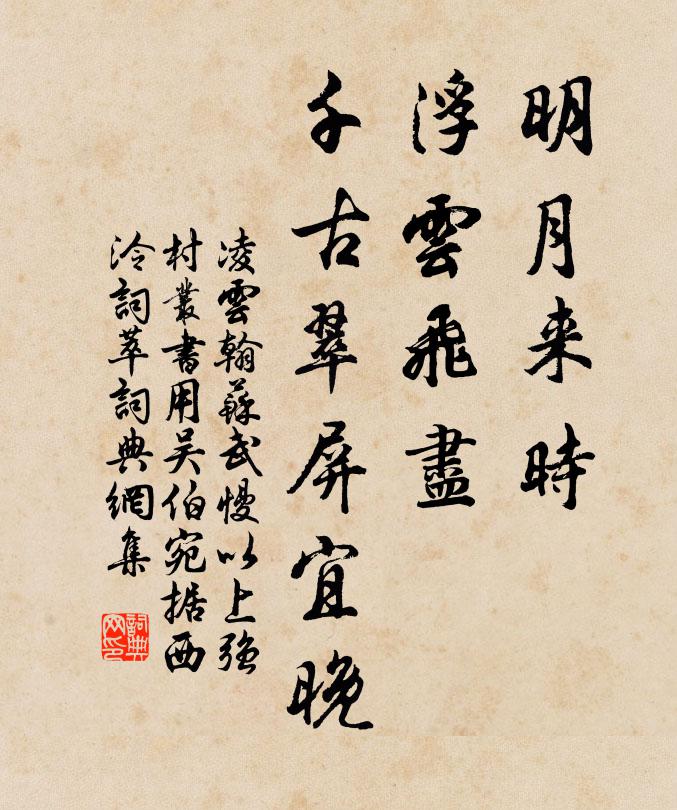 明月来時
浮雲飛盡
千古翠屏宜晚
凌雲翰蘇武慢以上強
村叢書用吴伯宛据西
泠詞萃詞典網集
詞典
网印